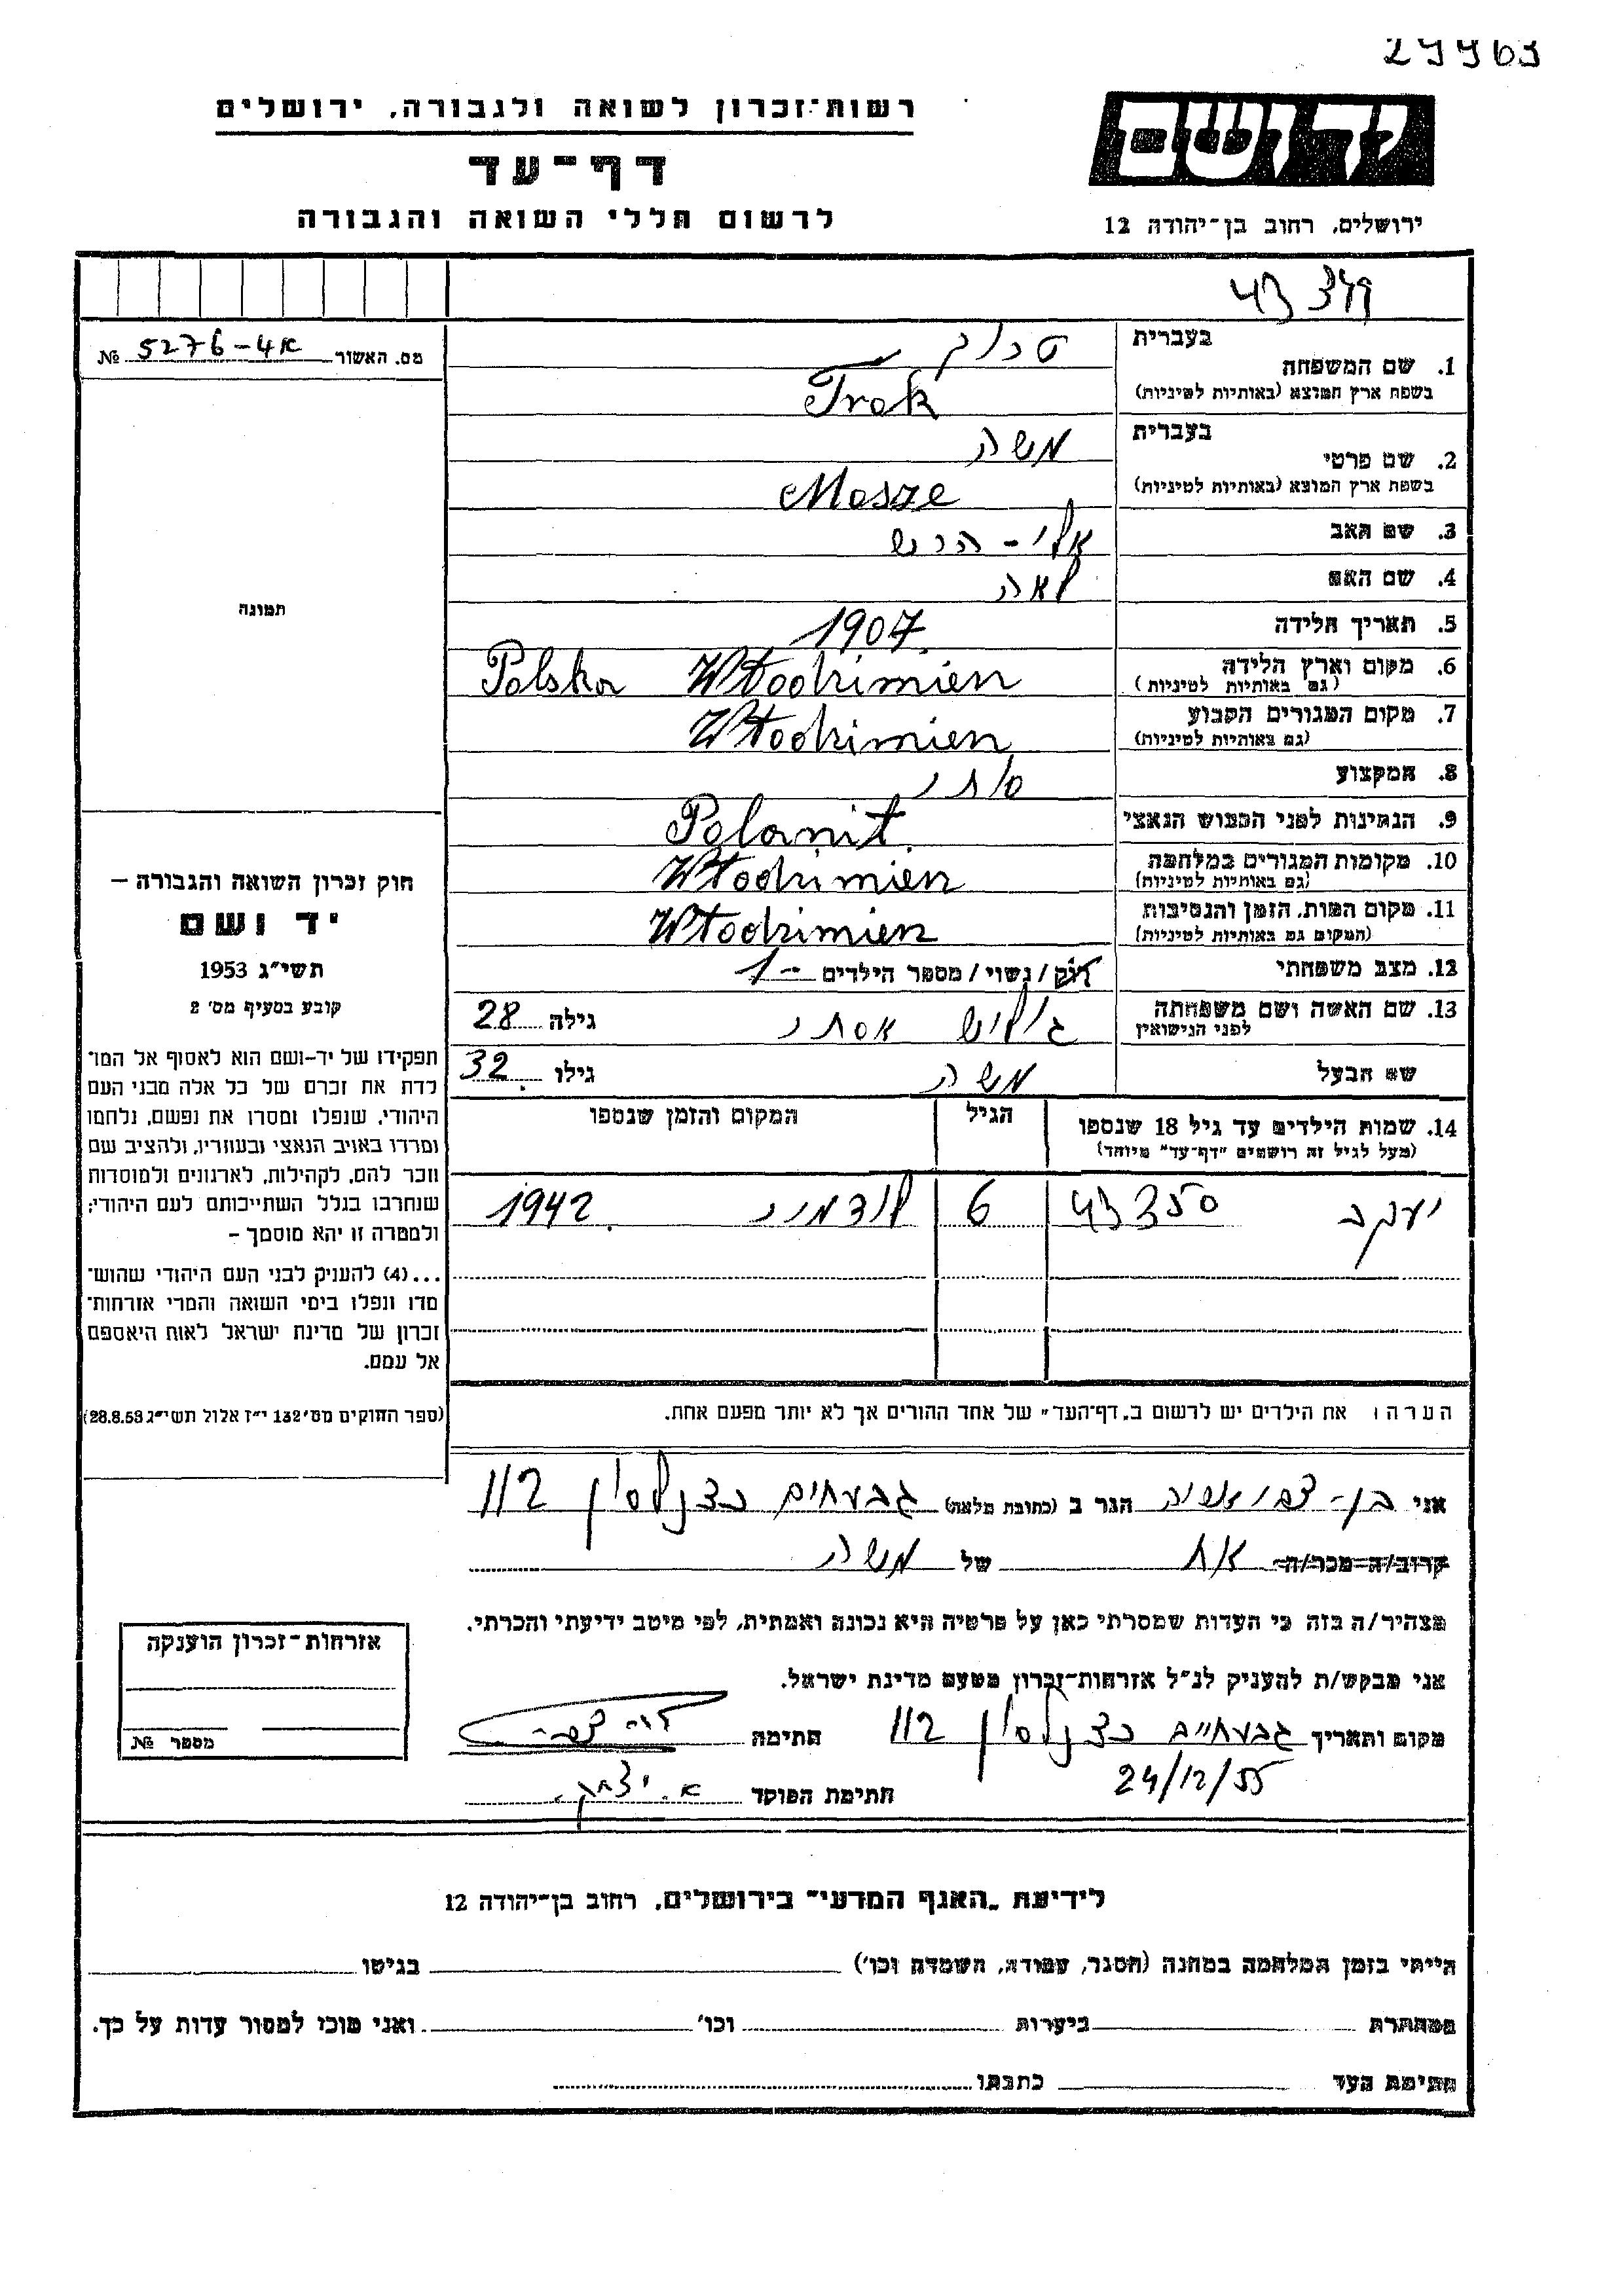 29963
רשות-זכרון לשואה ולגבורה, ירושלים
ידושם
דף-עד
לרשום חללי השואה והגבורה
ירושלים, רחוב בן-יהודה 12
43349
מס. האשור 5276-4א №
1. שם המשפחה
בעברית טרוק
בשפת ארץ המוצא (באותיות לטיניות) Trok
2. שם פרטי
בעברית משה
בשפת ארץ המוצא (באותיות לטיניות) Mosze
3. שם האב אלי-הרש
4. שם האם לאה
5. תאריך הלידה 1907
6. מקום וארץ הלידה Włodzimierz Polska
(גם באותיות לטיניות)
7. מקום המגורים הקבוע Włodzimierz
(גם באותיות לטיניות)
8. המקצוע סוחר
9. הנתינות לפני הכבוש הנאצי Polanit
10. מקומות המגורים במלחמה Włodzimierz
(גם באותיות לטיניות)
11. מקום המות, הזמן והנסיבות Włodzimierz
(המקום גם באותיות לטיניות)
12. מצב משפחתי רוק/נשוי/מספר הילדים 1-
13. שם האשה ושם משפחתה אסתר גילה 28
לפני הנישואין
שם הבעל משה גילו 32
14. שמות הילדים עד גיל 18 שנספו הגיל המקום והזמן שנספו
(מעל לגיל זה רושמים "דף-עד" מיוחד)
יעקב 43350 6 לודמיר 1942
הערה: את הילדים יש לרשום ב"דף-העד" של אחד ההורים אך לא יותר מפעם אחת.
תמונה
חוק זכרון השואה והגבורה –
יד ושם
תשי"ג 1953
קובע בסעיף מס' 2
תפקידו של יד-ושם הוא לאסוף אל המו־
לדת את זכרם של כל אלה מבני העם
היהודי, שנפלו ומסרו את נפשם, נלחמו
ומרדו באויב הנאצי ובעוזריו, ולהציב שם
וזכר להם, לקהילות, לארגונים ולמוסדות
שנחרבו בגלל השתייכותם לעם היהודי;
ולמטרה זו יהא מוסמך –
...(4) להעניק לבני העם היהודי שהוש־
מדו ונפלו בימי השואה והמרי אזרחות־
זכרון של מדינת ישראל לאות היאספם
אל עמם.
(ספר החוקים מס' 132 י"ז אלול תשי"ג 28.8.53)
אני בן-צבי הגר ב (כתובת מלאה) גבעתיים כצנלסון 112
קרוב/ה מכר/ה אח של משה
מצהיר/ה בזה כי העדות שמסרתי כאן על פרטיה היא נכונה ואמתית, לפי מיטב ידיעתי והכרתי.
אני מבקש/ת להעניק לנ"ל אזרחות-זכרון מטעם מדינת ישראל.
מקום ותאריך גבעתיים כצנלסון 112 חתימה
24/12/55
חתימת הפוקד א. יצחק
אזרחות-זכרון הוענקה
מספר №
לידיעת "האגף המדעי" בירושלים, רחוב בן-יהודה 12
הייתי בזמן המלחמה במחנה (הסגר, עבודה, השמדה וכו') בגיטו
במחתרת ביערות וכו' ואני מוכן למסור עדות על כך.
חתימת העד כתבתו